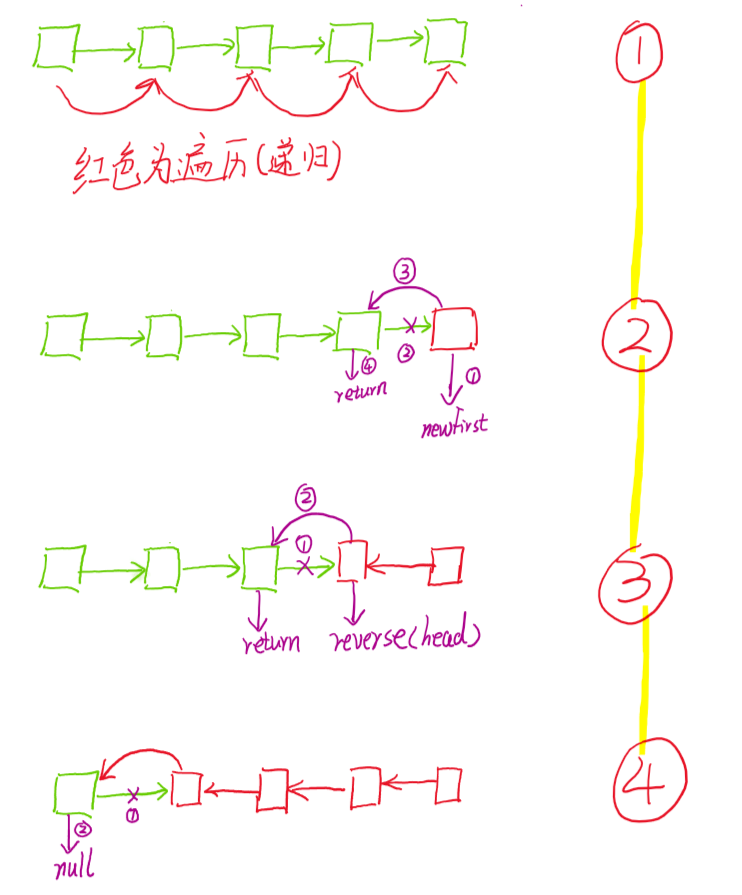 ①
红色为遍历(递归)
③
②
④
②
①
return
newfirst
②
①
③
return reverse(head)
④
①
②
null